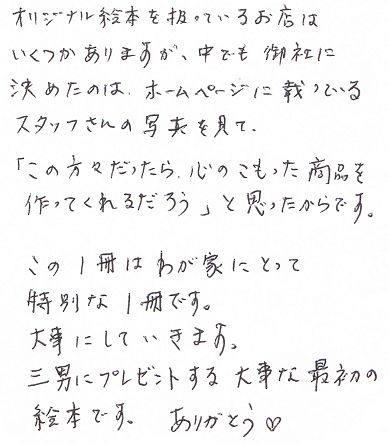 オリジナル絵本を扱っているお店は
いくつかありますが、中でも 御社に
決めたのは、ホームページに載っている
スタッフさんの写真を見て、
「この方々だったら、心のこもった商品を
作ってくれるだろう」と思ったからです。
この1冊はわが家にとって
特別な1冊です。
大事にしていきます。
三男にプレゼントする大事な最初の
絵本です。 ありがとう♡